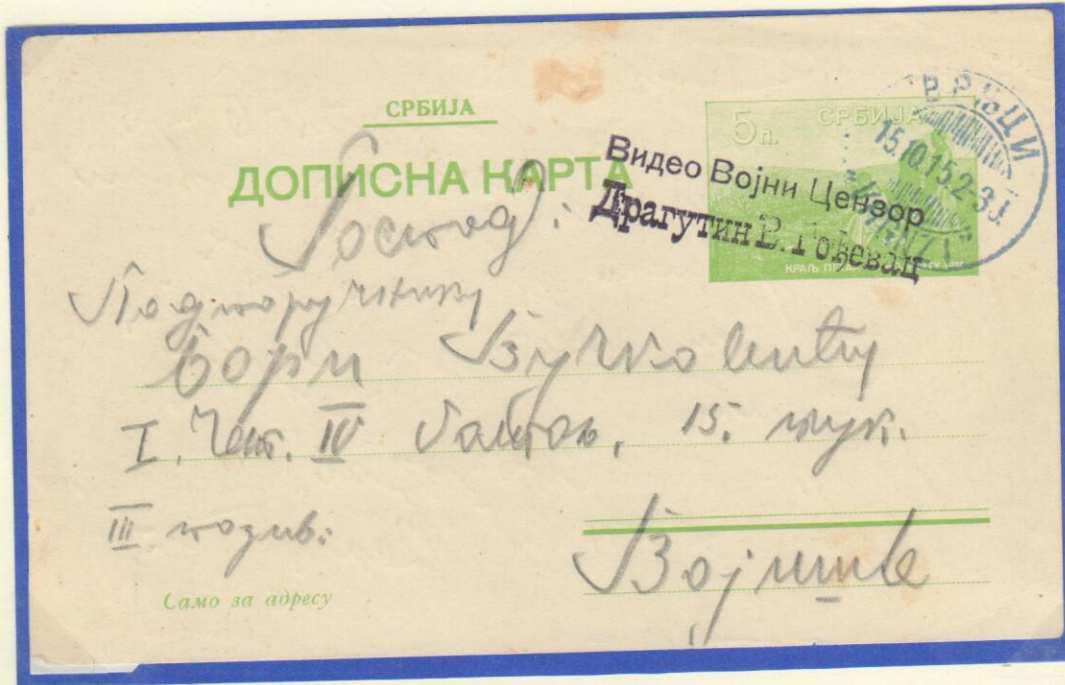 СРБИЈА
ДОПИСНА КАРТА
5п. СРБИЈА
ВРЊЦИ
15.10.15.2-3
КРАЉ
Видео Војни Цензор
Драгутин В. Гођевац
Господ:
Подпоручнику
Бори Вучковићу
I. Чет. IV батољ. 15. пук.
III позив:
Војишће
Само за адресу